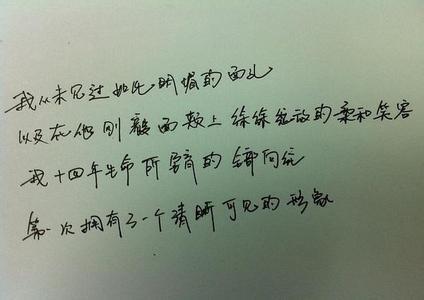 我从未见过如此明媚的面孔
以及在他刚毅面颊上徐徐绽放的柔和笑容
我十四年生命所育的全部向往
第一次拥有了一个清晰可见的形象